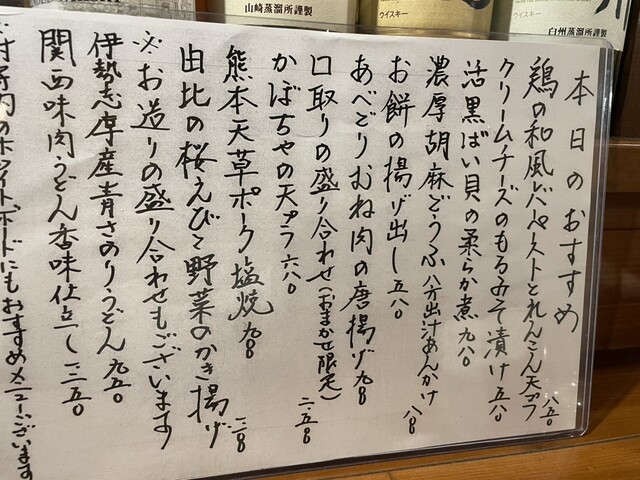 本日のおすすめ
鶏の和風レバーペーストとれんこん天プラ 八五〇
クリームチーズのもろみそ漬け 五八〇
活黒ばい貝の柔らか煮 九八〇
濃厚胡麻どうふ 八方出汁あんかけ 八八〇
お餅の揚げ出し 五八〇
あべどりむね肉の唐揚げ 九八〇
口取りの盛り合わせ(おまかせ限定) 二、五八〇
かぼちゃの天プラ 六八〇
熊本天草ポーク塩焼 九八〇
由比の桜えびと野菜のかき揚げ
※お造りの盛り合わせもございます
伊勢志摩産青さのりうどん 九五〇
関西味肉うどん香味仕立し 一二五〇
のホワイトボードにもおすすめメニューございます
山崎蒸溜所謹製
ウイスキー
白州蒸溜所謹製
ウイスキー